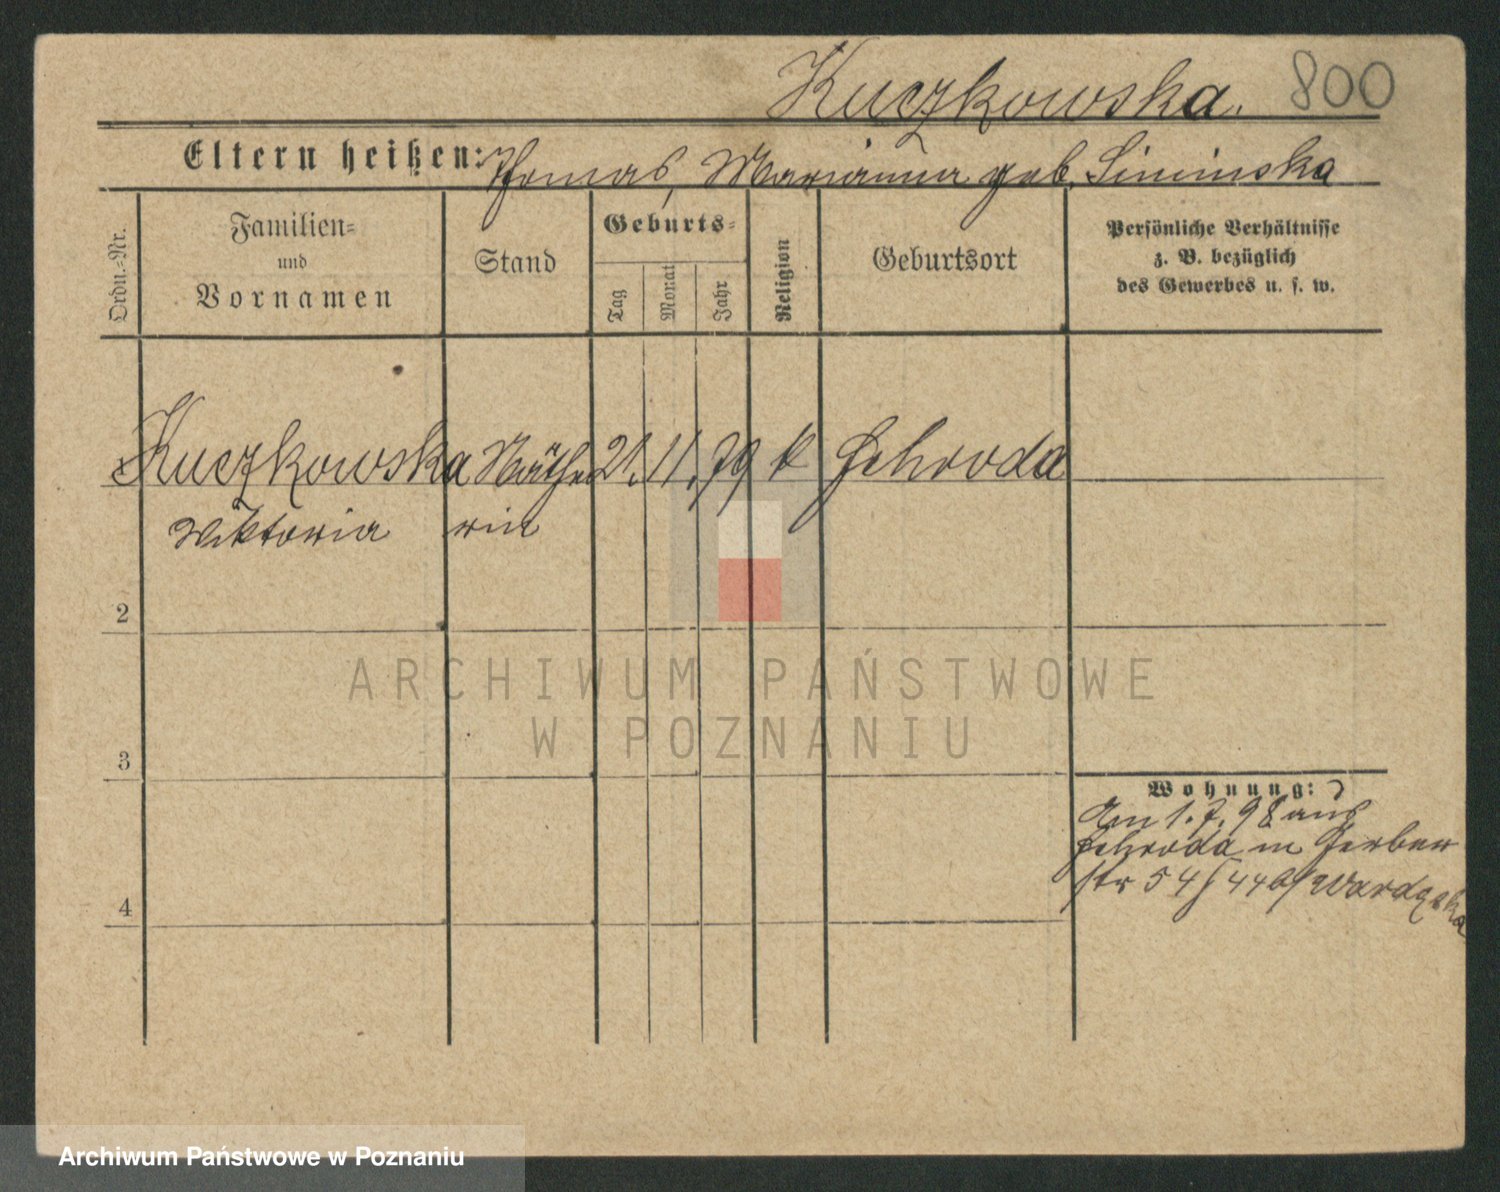 Kuczkowska. 800
Eltern heißen: Thomas, Marianna geb. Siminska
Ordn.-Nr.
Familien-
und
Vornamen
Stand
Geburts-
Tag
Monat
Jahr
Religion
Geburtsort
Persönliche Verhältnisse
z. B. bezüglich
des Gewerbes u. s. w.
Kuczkowska Näthe 21. 11. 79 k Schroda
Wiktoria rin
2
3
4
Wohnung:
Am 1. 7. 98 aus
Schroda in Gerber
str 54
ARCHIWUM PAŃSTWOWE
W POZNANIU
Archiwum Państwowe w Poznaniu